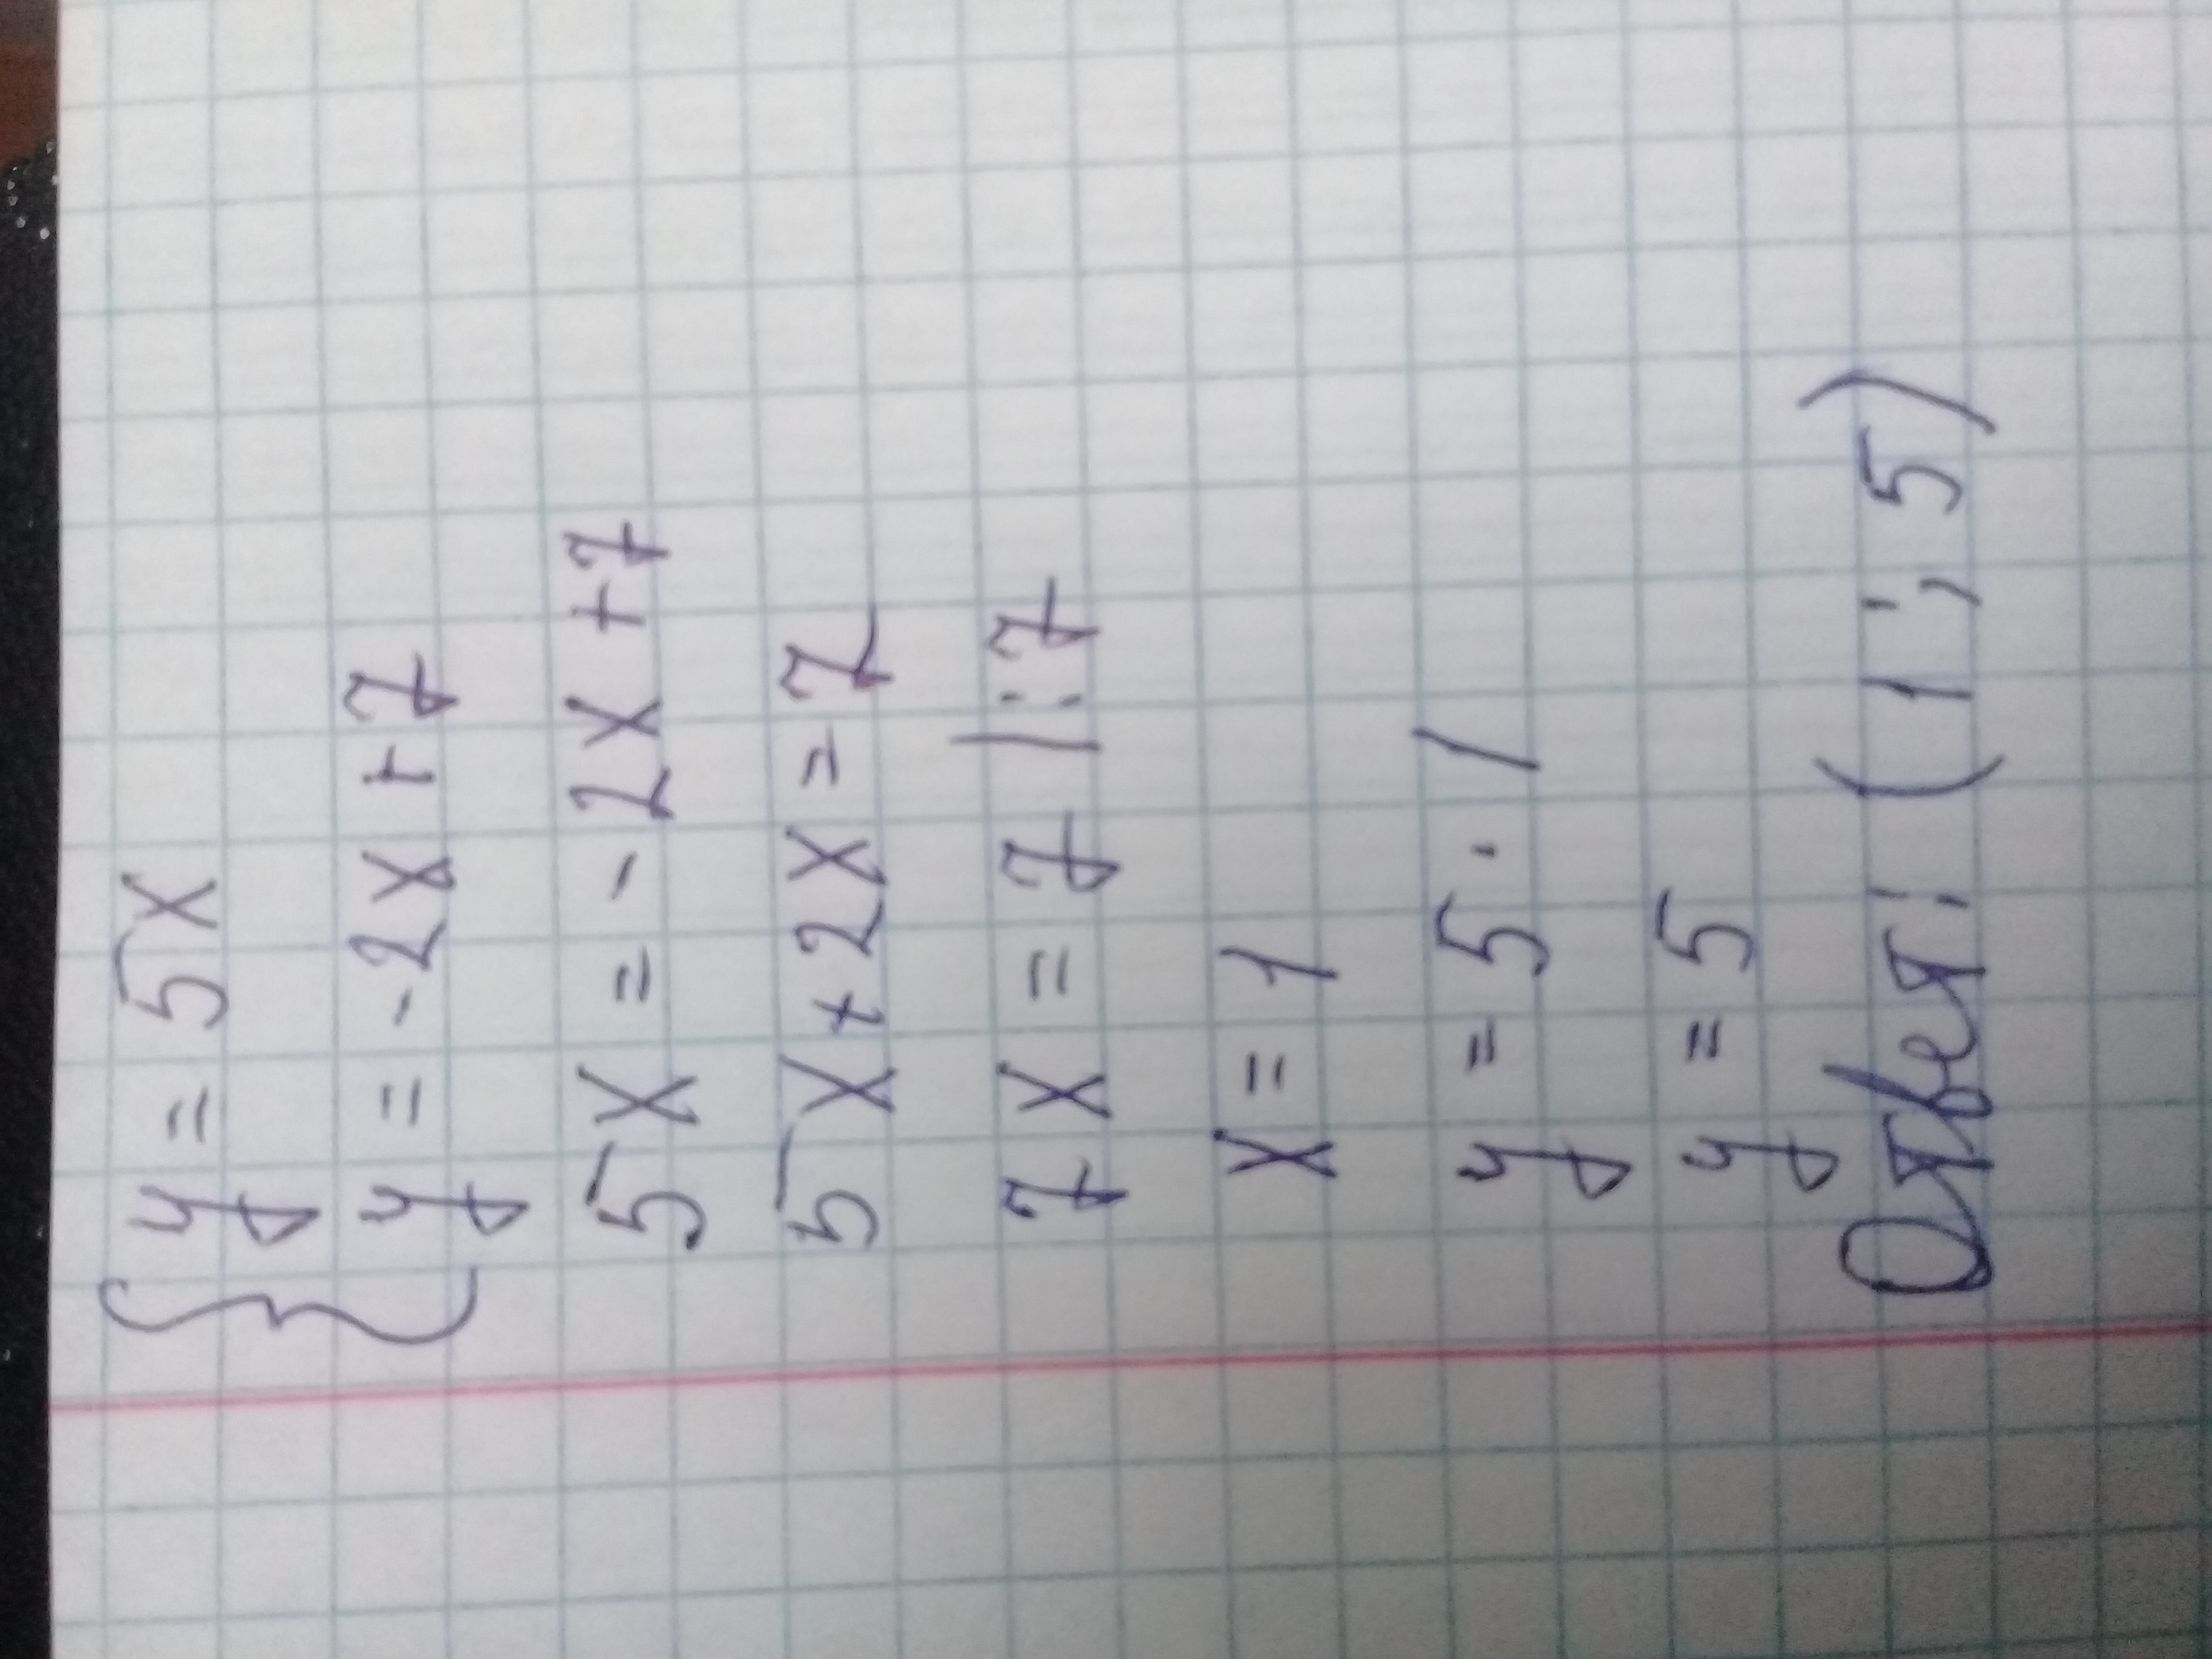 { y = 5x
y = -2x + 7
5x = -2x + 7
5x + 2x = 7
7x = 7 |:7
x = 1
y = 5 · 1
y = 5
Ответ: (1; 5)